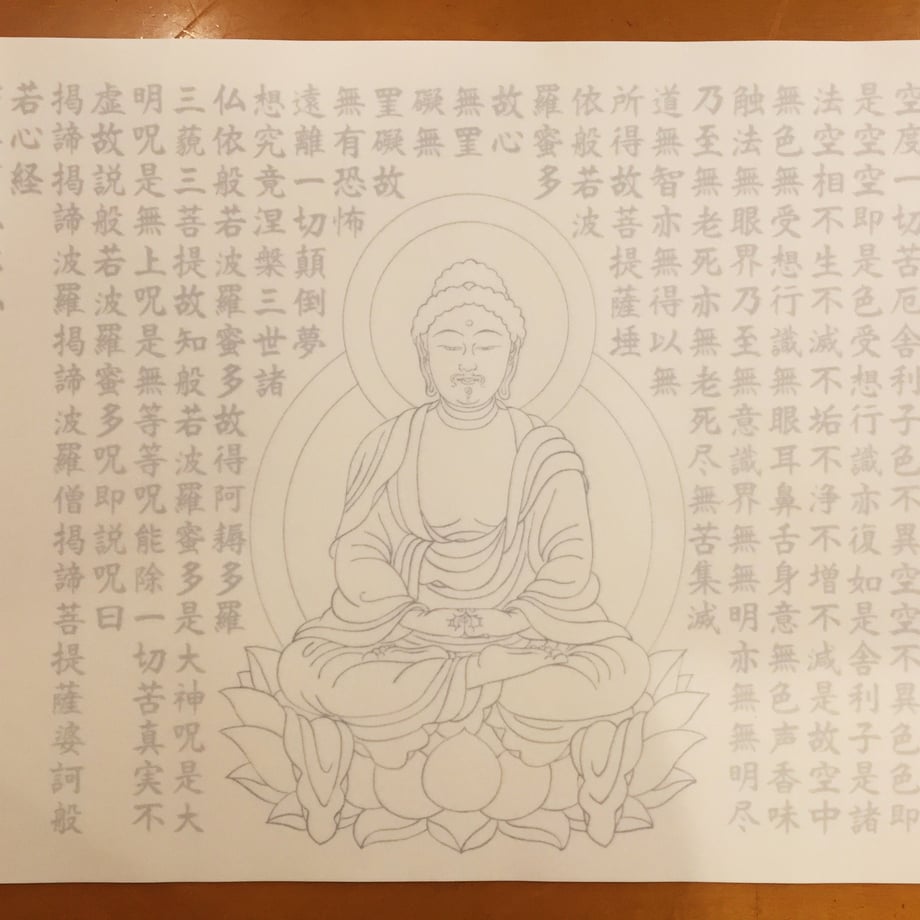 空度一切苦厄舎利子色不異空空不異色色即
是空空即是色受想行識亦復如是舎利子是諸
法空相不生不滅不垢不浄不増不減是故空中
無色無受想行識無眼耳鼻舌身意無色声香味
触法無眼界乃至無意識界無無明亦無無明尽
乃至無老死亦無老死尽無苦集滅
道無智亦無得以無
所得故菩提薩埵
依般若波
羅蜜多
故心
無罣
礙無
罣礙故
無有恐怖
遠離一切顛倒夢
想究竟涅槃三世諸
仏依般若波羅蜜多故得阿耨多羅
三藐三菩提故知般若波羅蜜多是大神呪是大
明呪是無上呪是無等等呪能除一切苦真実不
虚故説般若波羅蜜多呪即説呪曰
掲諦掲諦波羅掲諦波羅僧掲諦菩提薩婆訶般
若心経